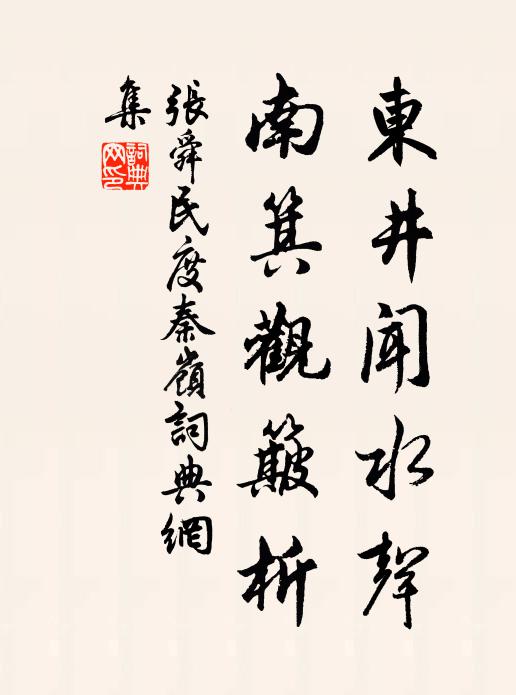 東井聞水聲
南箕觀簸析
張舜民度秦嶺詞典網
集
詞典
网印